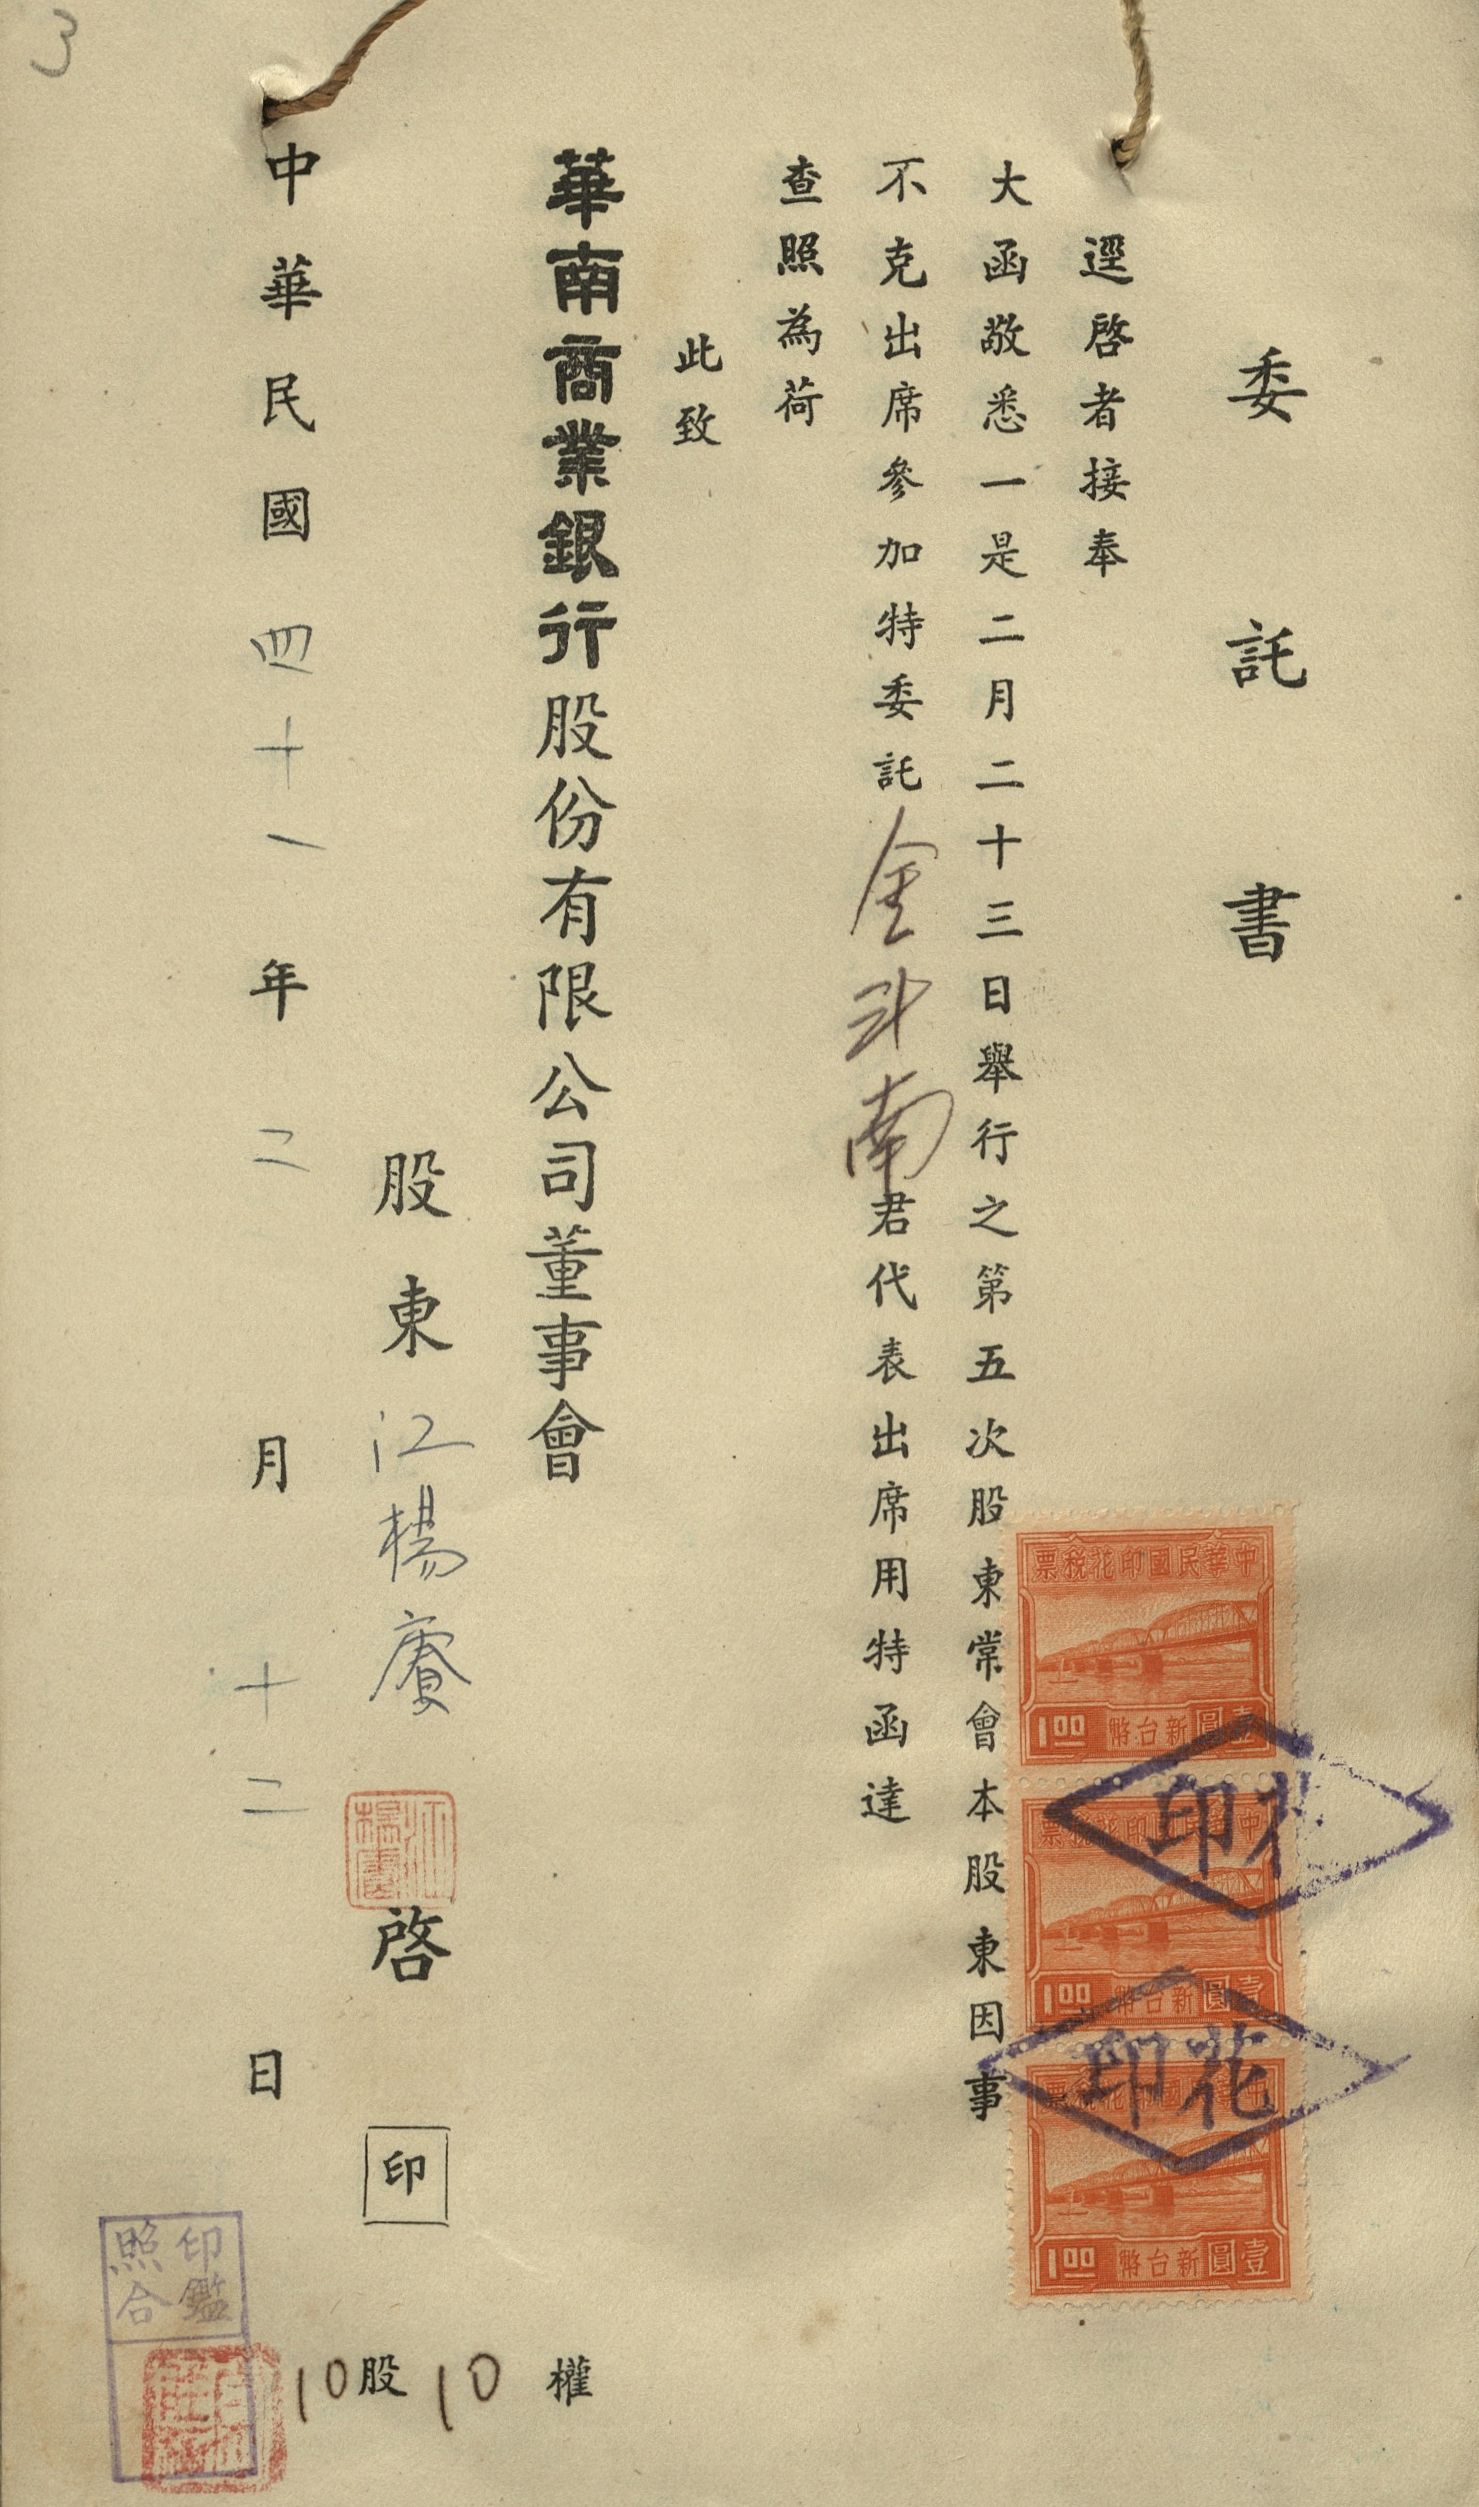 委託書
逕啓者接奉
大函敬悉一是二月二十三日舉行之第五次股東常會本股東因事
不克出席參加特委託金斗南君代表出席用特函達
查照為荷
此致
華南商業銀行股份有限公司董事會
股東江楊賡啓
印
10股10權
中華民國四十一年二月十二日
中華民國印花稅票
1.00
壹圓新台幣
中華民國印花稅票
1.00
壹圓新台幣
中華民國印花稅票
1.00
壹圓新台幣
印花
印花
印鑑
照合
3